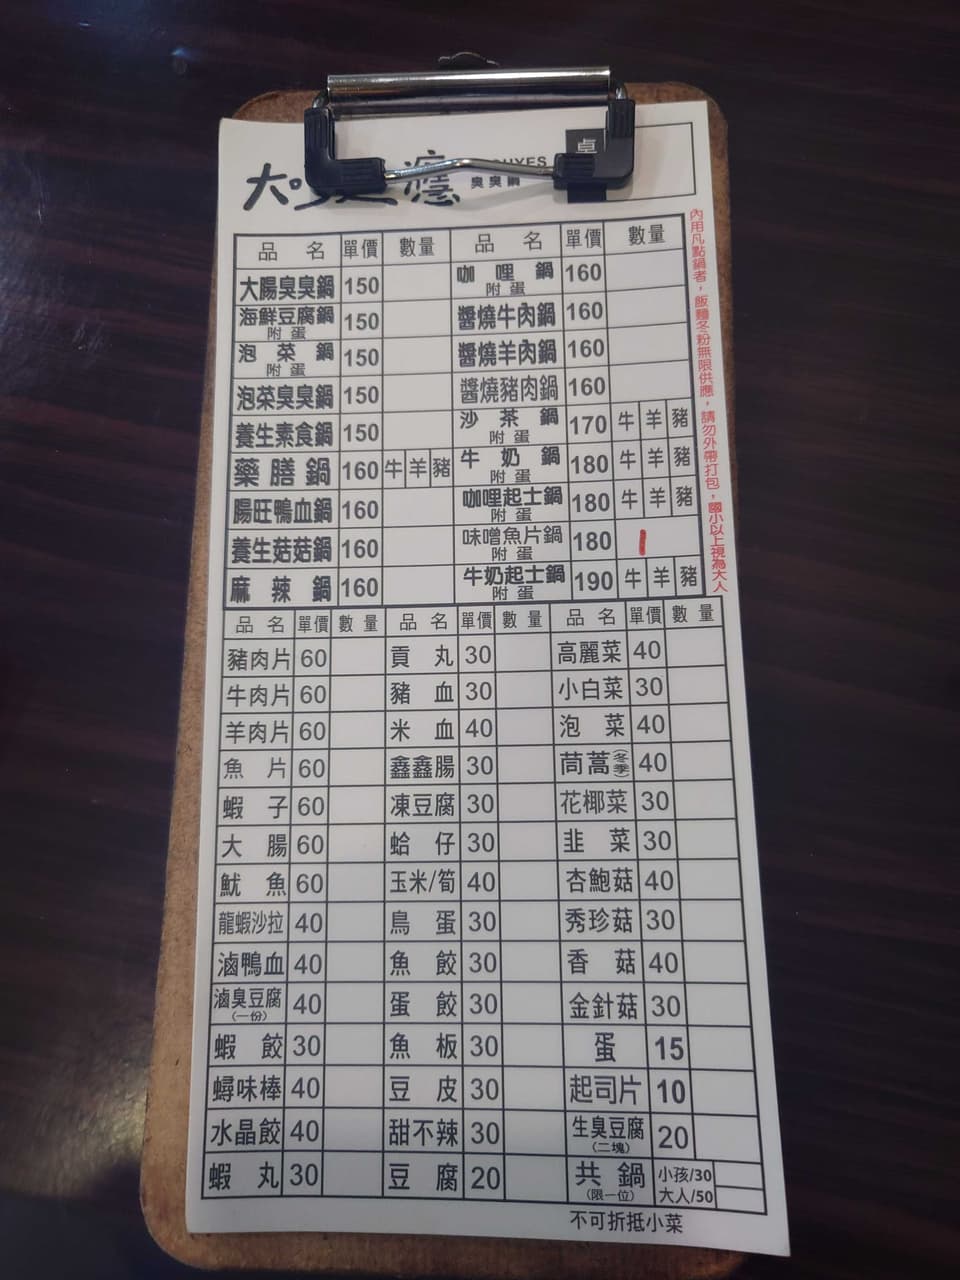 臭臭鍋
桌
內用凡點鍋者，飯麵冬粉無限供應，請勿外帶打包，國小以上視為大人
品名 單價 數量 品名 單價 數量
大腸臭臭鍋 150 咖哩鍋 附蛋 160
海鮮豆腐鍋 附蛋 150 醬燒牛肉鍋 160
泡菜鍋 附蛋 150 醬燒羊肉鍋 160
泡菜臭臭鍋 150 醬燒豬肉鍋 160
養生素食鍋 150 沙茶鍋 附蛋 170 牛 羊 豬
藥膳鍋 160 牛 羊 豬 牛奶鍋 附蛋 180 牛 羊 豬
腸旺鴨血鍋 160 咖哩起士鍋 附蛋 180 牛 羊 豬
養生菇菇鍋 160 味噌魚片鍋 附蛋 180 1
麻辣鍋 160 牛奶起士鍋 附蛋 190 牛 羊 豬
品名 單價 數量 品名 單價 數量 品名 單價 數量
豬肉片 60 貢丸 30 高麗菜 40
牛肉片 60 豬血 30 小白菜 30
羊肉片 60 米血 40 泡菜 40
魚片 60 鑫鑫腸 30 茼蒿(冬季) 40
蝦子 60 凍豆腐 30 花椰菜 30
大腸 60 蛤仔 30 韭菜 30
魷魚 60 玉米/筍 40 杏鮑菇 40
龍蝦沙拉 40 鳥蛋 30 秀珍菇 30
滷鴨血 40 魚餃 30 香菇 40
滷臭豆腐(一份) 40 蛋餃 30 金針菇 30
蝦餃 30 魚板 30 蛋 15
蟳味棒 40 豆皮 30 起司片 10
水晶餃 40 甜不辣 30 生臭豆腐(二塊) 20
蝦丸 30 豆腐 20 共鍋(限一位) 小孩/30 大人/50
不可折抵小菜